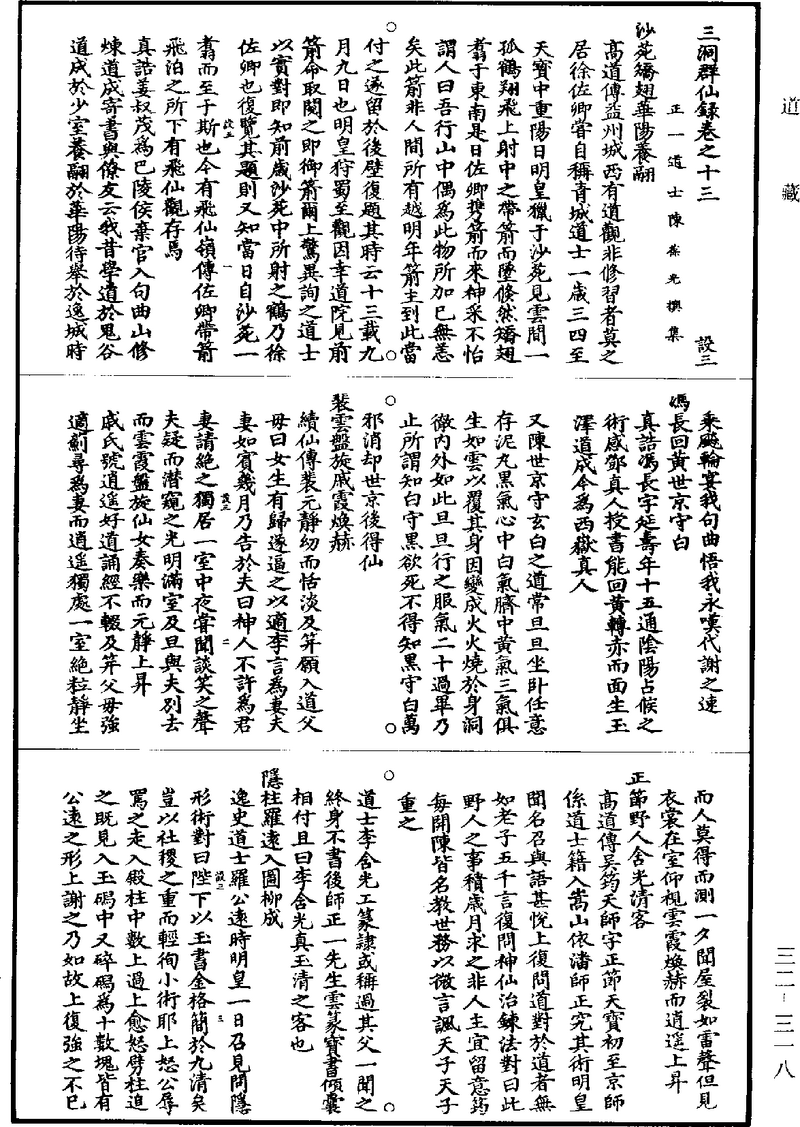 道藏
三二—三一八
三洞群仙録卷之十三　設三
正一道士陳葆光撰集
沙苑矯翅華陽養翮
高道傳益州城西有道觀非修習者莫之
居徐佐卿嘗自稱青城道士一歲三四至
天寶中重陽日明皇獵于沙苑見雲間一
孤鶴翔飛上射中之帶箭而墜倏然矯翅
翥于東南是日佐卿攜箭而來神采不怡
謂人曰吾行山中偶為此物所加已無恙
矣此箭非人間所有越明年箭主到此當
付之遂留於後壁復題其時云十三載九
月九日也明皇狩蜀至觀因幸道院見前
箭命取閱之即御箭爾上驚異詢之道士
以實對即知前歲沙苑中所射之鶴乃徐
佐卿也復覽其題則又知當日自沙苑一
翥而至于斯也今有飛仙嶺傳佐卿帶箭
飛泊之所下有飛仙觀存焉
真誥姜叔茂為巴陵侯棄官入句曲山修
煉道成寄書與僚友云我昔學道於鬼谷
道成於少室養翮於華陽待舉於逸城時
乘飈輪宴我句曲悟我永嘆代謝之速
馮長回黃世京守白
真誥馮長字延壽年十五通陰陽占候之
術感鄧真人授書能回黃轉赤而面生玉
澤道成今為西嶽真人
又陳世京守玄白之道常旦旦坐卧任意
存泥丸黑氣心中白氣臍中黃氣三氣俱
生如雲以覆其身因變成火火燒於身洞
徹內外如此旦旦行之服氣二十過畢乃
止所謂知白守黑欲死不得知黑守白萬
邪消却世京後得仙
裴雲盤旋戚霞煥赫
續仙傳裴元靜幼而恬淡及笄願入道父
母曰女生有歸遂逼之以適李言為妻夫
妻如賓幾月乃告於夫曰神人不許為君
妻請絕之獨居一室中夜嘗聞談笑之聲
夫疑而潛窺之光明滿室及旦與夫別去
而雲霞盤旋仙女奏樂而元靜上昇
戚氏號逍遥好道誦經不輟及笄父母強
適蒯尋為妻而逍遥獨處一室絕粒靜坐
而人莫得而測一夕聞屋裂如雷聲但見
衣裳在室仰視雲霞煥赫而逍遥上昇
正節野人含光清客
高道傳吳筠天師字正節天寶初至京師
係道士籍入嵩山依潘師正究其術明皇
聞名召與語甚悅上復問道對於道者無
如老子五千言復問神仙治鍊法對曰此
野人之事積歲月求之非人主宜留意筠
每開陳皆名教世務以微言諷天子天子
重之
道士李含光工篆隸或稱過其父一聞之
終身不書後師正一先生雲篆寶書傾囊
相付且曰李含光真玉清之客也
隱柱羅遠入圖柳成
逸史道士羅公遠時明皇一日召見問隱
形術對曰陛下以玉書金格簡於九清矣
豈以社稷之重而輕徇小術耶上怒公辱
罵之走入殿柱中數上過上愈怒劈柱追
之既見入玉碣中又碎碣為十數塊皆有
公遠之形上謝之乃如故上復強之不已